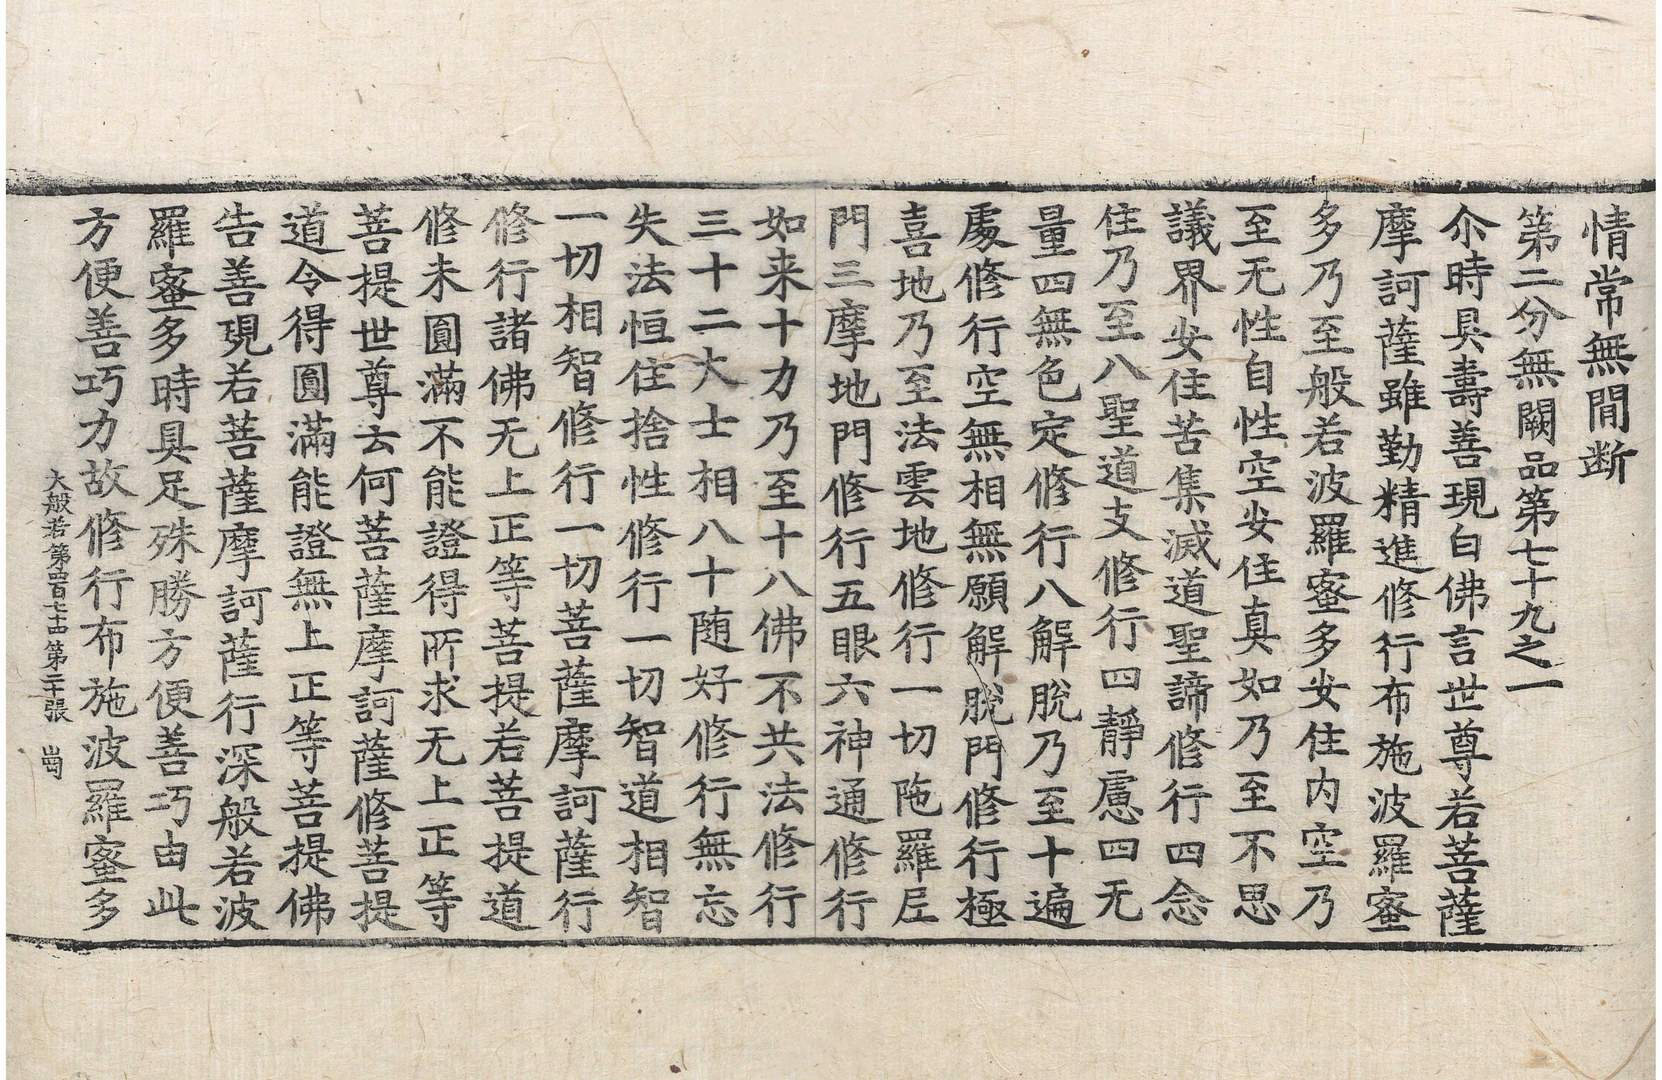 情常無閒断
第二分無闕品第七十九之一
尒時具壽善現白佛言世尊若菩薩
摩訶薩雖勤精進修行布施波羅蜜
多乃至般若波羅蜜多安住内空乃
至无性自性空安住真如乃至不思
議界安住苦集滅道聖諦修行四念
住乃至八聖道支修行四靜慮四无
量四無色定修行八解脫乃至十遍
處修行空無相無願解脫門修行極
喜地乃至法雲地修行一切陁羅尼
門三摩地門修行五眼六神通修行
如来十力乃至十八佛不共法修行
三十二大士相八十随好修行無忘
失法恒住捨性修行一切智道相智
一切相智修行一切菩薩摩訶薩行
修行諸佛无上正等菩提若菩提道
修未圓滿不能證得所求无上正等
菩提世尊云何菩薩摩訶薩修菩提
道令得圓滿能證無上正等菩提佛
告善現若菩薩摩訶薩行深般若波
羅蜜多時具足殊勝方便善巧由此
方便善巧力故修行布施波羅蜜多
大般若第四百七十四第二十張